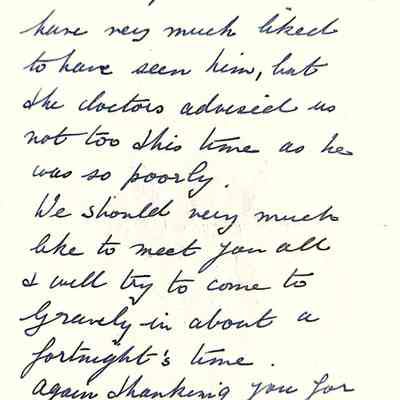 have very much liked
to have seen him, but
the doctors advised us
not too this time as he
was so poorly.
We should very much
like to meet you all
I will try to come to
Gravely in about a
fortnight's time.
Again thanking you for